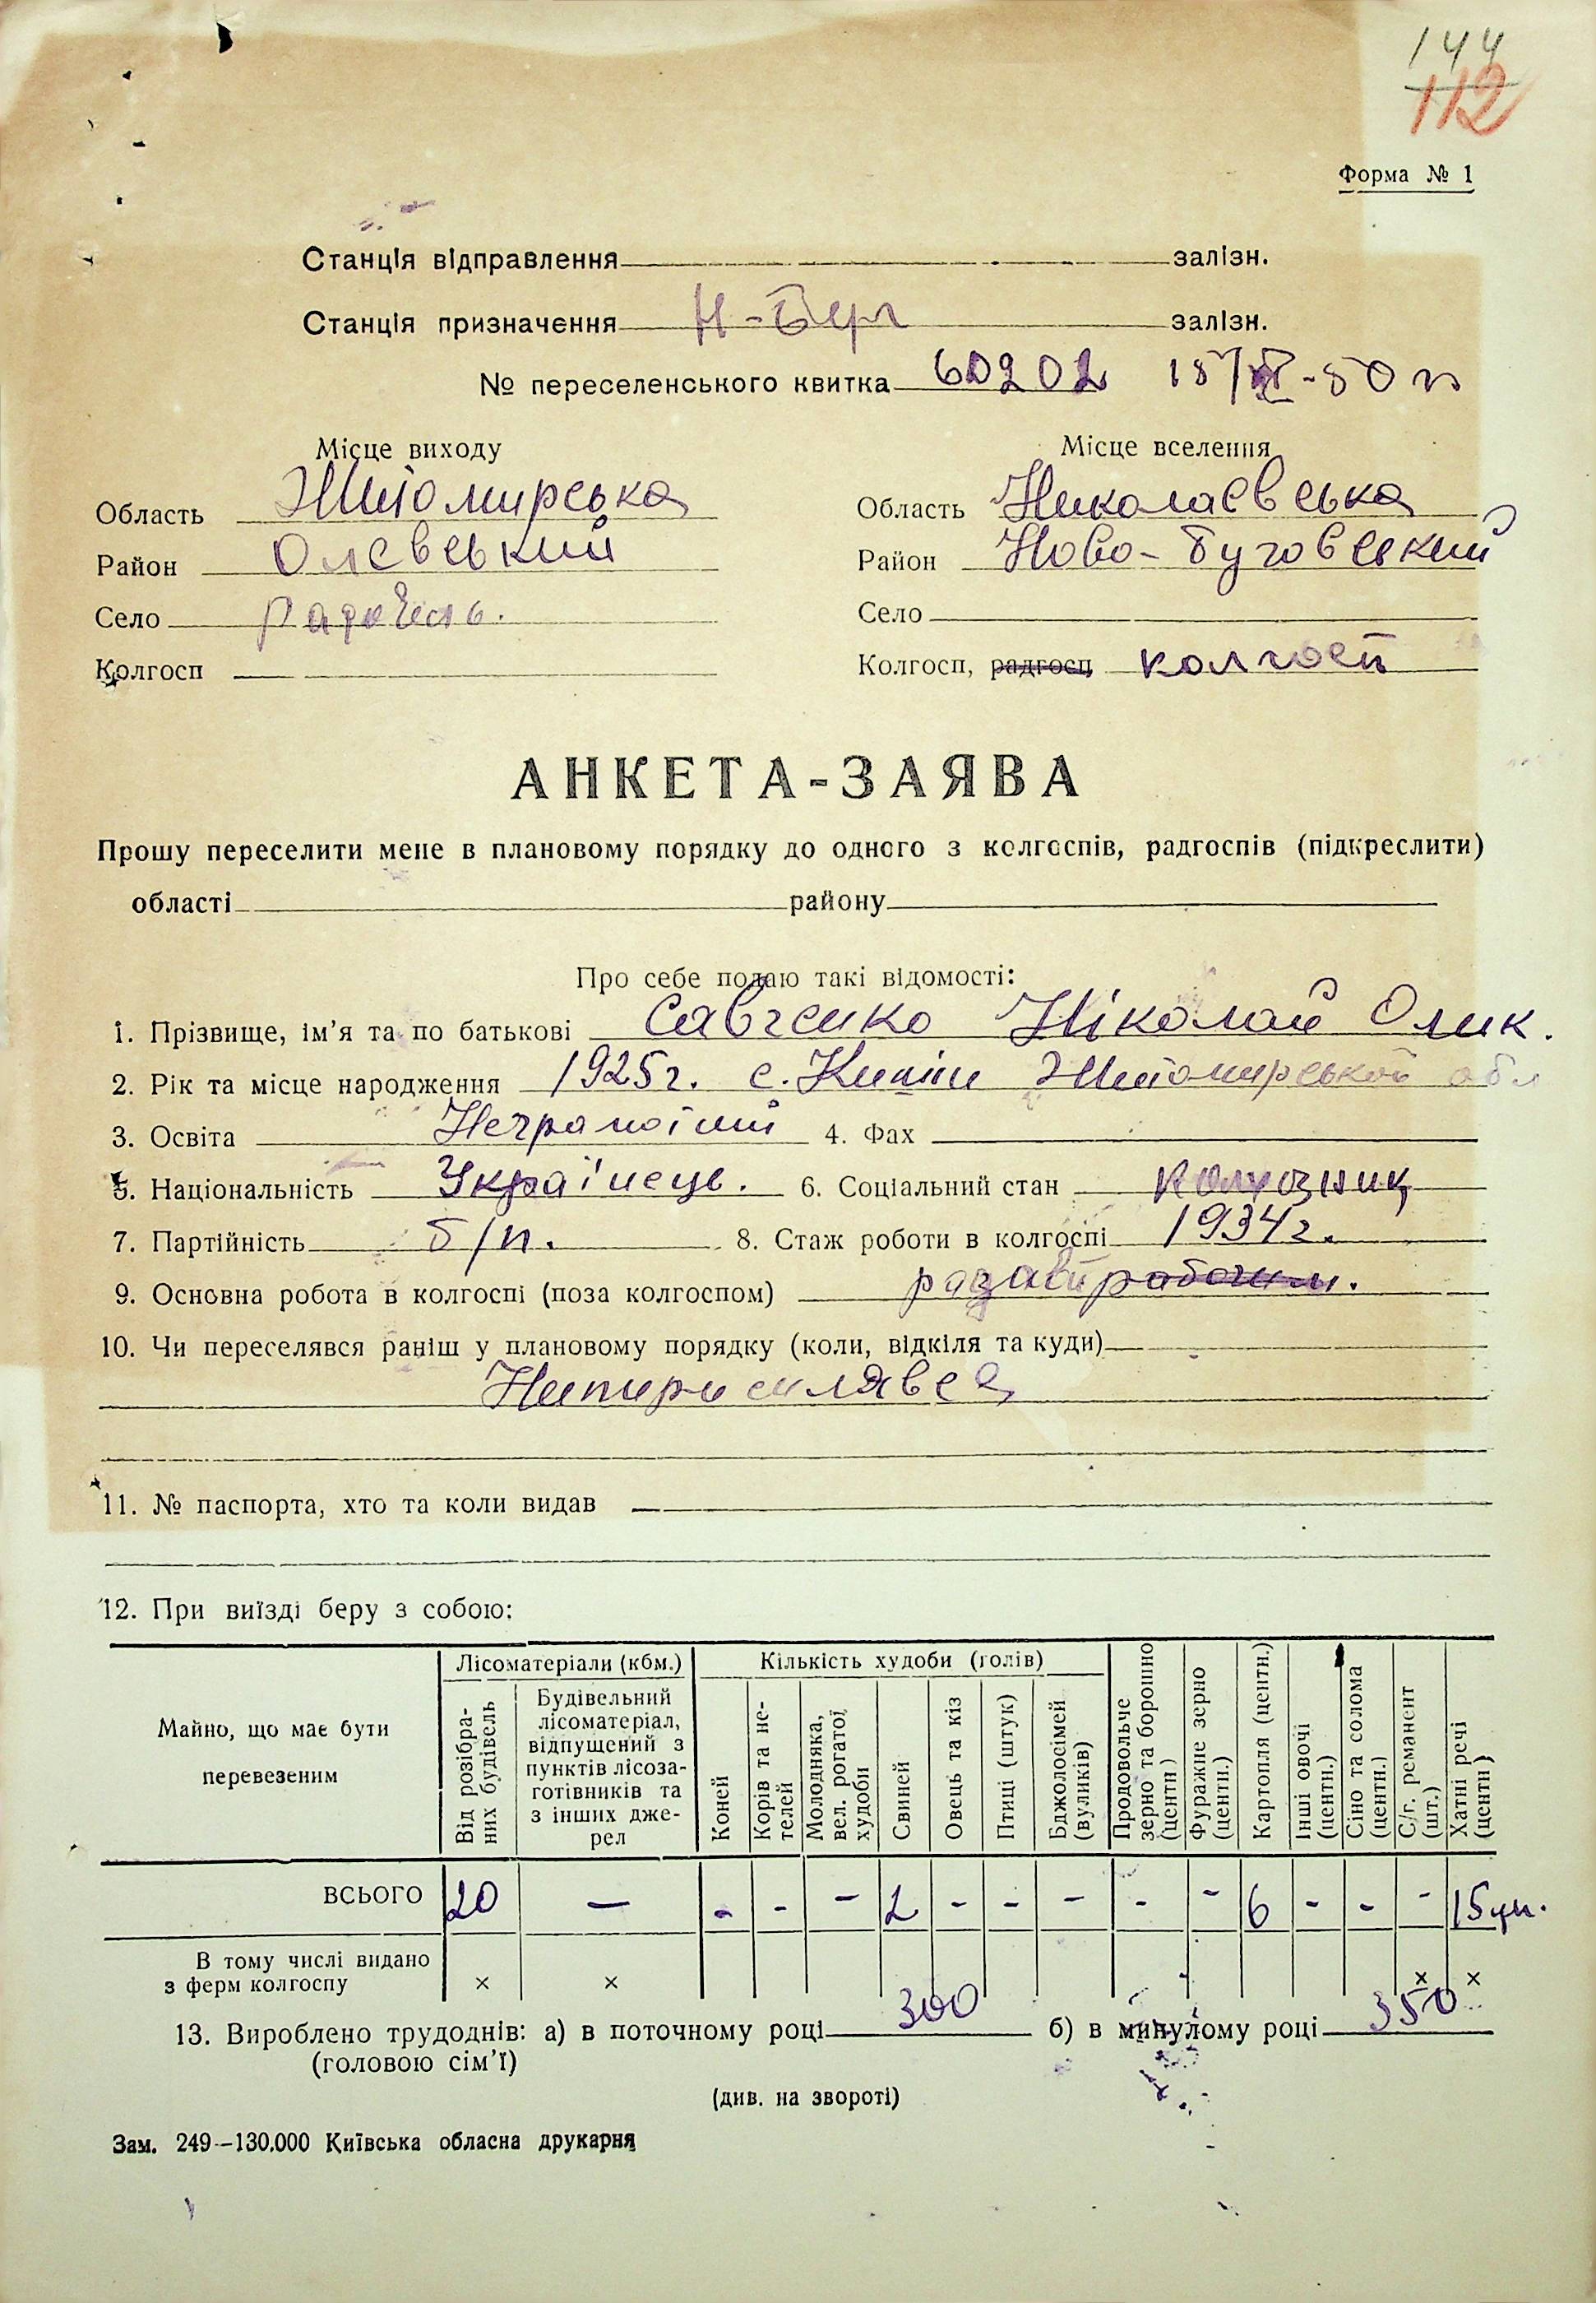 144
112
Форма № 1
Станція відправлення залізн.
Станція призначення Н-Буг залізн.
№ переселенського квитка 60202 15/ -50 г
Місце виходу Місце вселення
Область Житомирська Область Николаєвська
Район Олєвський Район Ново-Буговський
Село Село
Колгосп Колгосп, радгосп колгосп
АНКЕТА-ЗАЯВА
Прошу переселити мене в плановому порядку до одного з колгоспів, радгоспів (підкреслити)
області району
Про себе подаю такі відомості:
1. Прізвище, ім'я та по батькові Савченко Ніколай Олик.
2. Рік та місце народження 1925г. с. Кишин Житомирськой обл
3. Освіта Неграмотний 4. Фах
5. Національність Українець. 6. Соціальний стан колхозник
7. Партійність б/п. 8. Стаж роботи в колгоспі 1934г.
9. Основна робота в колгоспі (поза колгоспом) рабочим.
10. Чи переселявся раніш у плановому порядку (коли, відкіля та куди)
Нипириселявся
11. № паспорта, хто та коли видав
12. При виїзді беру з собою:
Майно, що має бути перевезеним
Лісоматеріали (кбм.)
Від розібраних будівель
Будівельний лісоматеріал, відпущений з пунктів лісозаготівників та з інших джерел
Кількість худоби (голів)
Коней
Корів та нетелей
Молодняка, вел. рогатої худоби
Свиней
Овець та кіз
Птиці (штук)
Бджолосімей (вуликів)
Продовольче зерно та борошно (центн)
Фуражне зерно (центн.)
Картопля (центн.)
Інші овочі (центн.)
Сіно та солома (центн.)
С/г. реманент (шт.)
Хатні речі (центн)
ВСЬОГО 20 — - - - 2 - - - - - 6 - - - 15 цн.
В тому числі видано з ферм колгоспу × × × ×
13. Вироблено трудоднів: а) в поточному році 300 б) в минулому році 350
(головою сім'ї)
(див. на звороті)
Зам. 249—130.000 Київська обласна друкарня